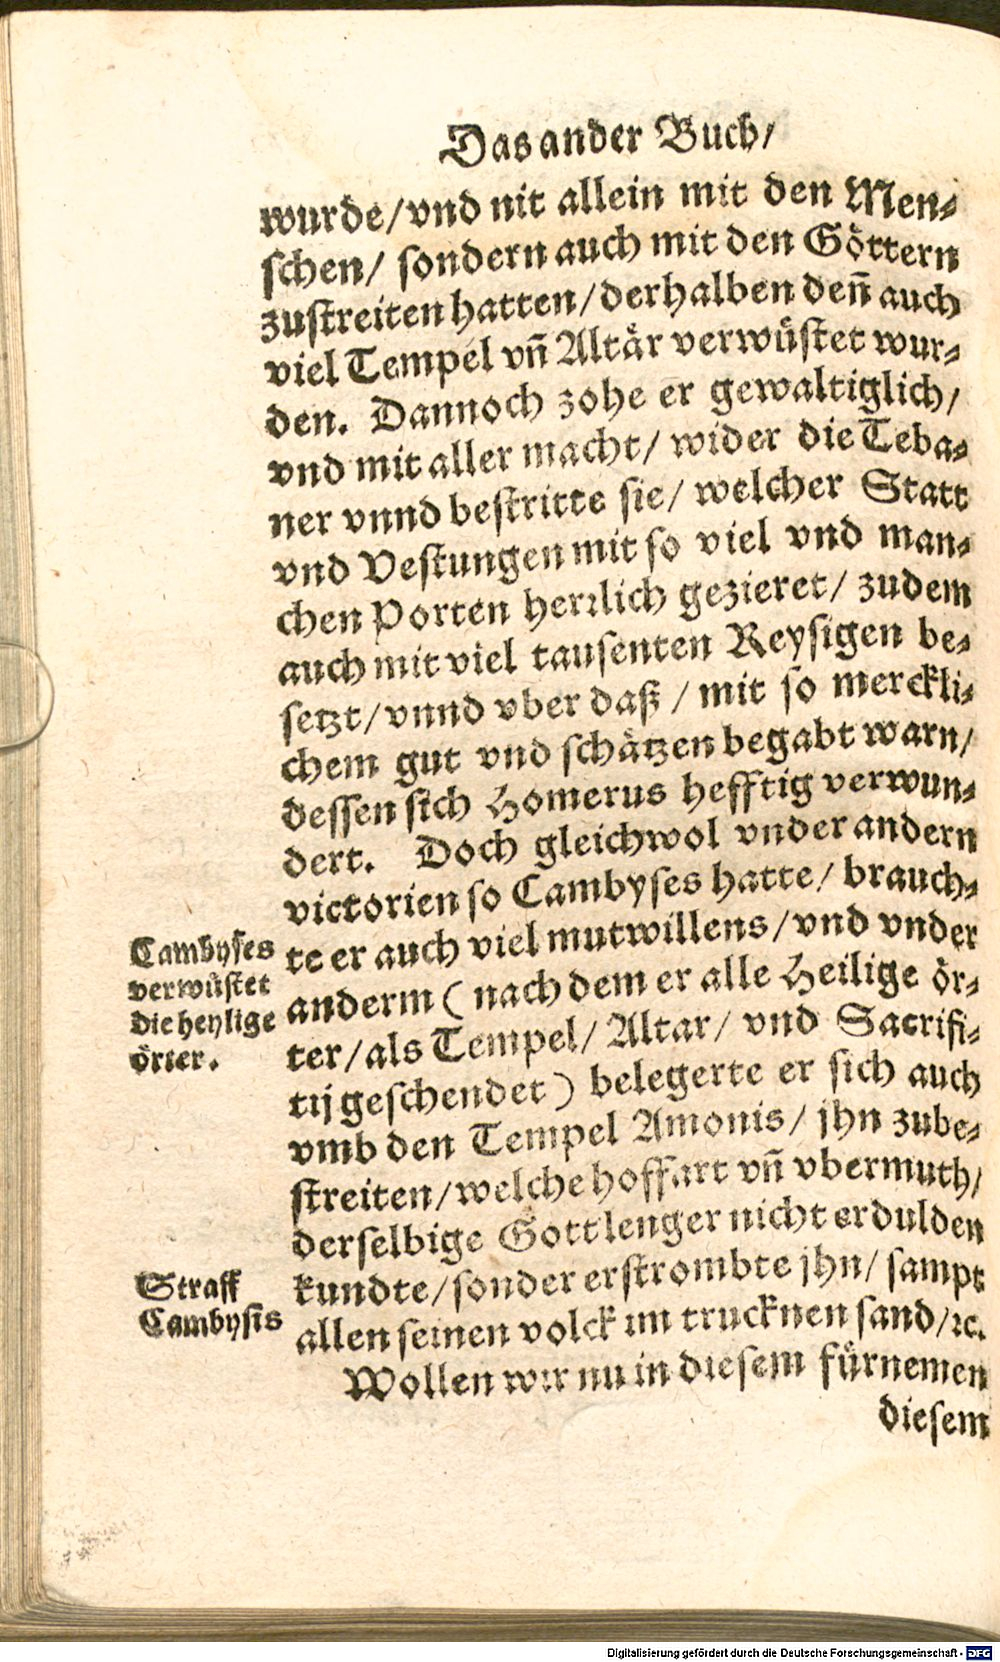 Das ander Buch/
wurde/vnd nit allein mit den Men⸗
schen/ sondern auch mit den Göttern
zustreiten hatten/derhalben deñ auch
viel Tempel vñ Altär verwüstet wur⸗
den. Dannoch zohe er gewaltiglich/
vnd mit aller macht/ wider die Teba⸗
ner vnnd bestritte sie/ welcher Statt
vnd Vestungen mit so viel vnd man⸗
chen Porten herꝛlich gezieret/ zudem
auch mit viel tausenten Reysigen be⸗
setzt/vnnd vber daß / mit so merckli⸗
chem gut vnd schätzen begabt warn/
dessen sich Homerus hefftig verwun⸗
dert. Doch gleichwol vnder andern
victorien so Cambyses hatte/ brauch⸗
te er auch viel mutwillens/vnd vnder
anderm ( nach dem er alle Heilige ör⸗
ter/als Tempel/ Altar/ vnd Sacrifi⸗
tij geschendet ) belegerte er sich auch
vmb den Tempel Amonis/ jhn zube⸗
streiten/welche hoffart vñ vbermuth/
derselbige Gott lenger nicht erdulden
kundte/sonder erstrombte jhn/ sampt
allen seinen volck im trucknen sand/ꝛc.
Wollen wir nu in diesem fürnemen
diesem
Cambyses
verwüstet
die heylige
örter.
Straff
Cambysis
Digitalisierung gefördert durch die Deutsche Forschungsgemeinschaft - DFG